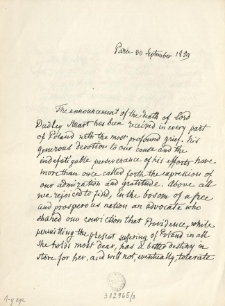 Paris 30 September 1859
The announcement of the death of Lord
Dudley Stuart has been received in every part
of Poland with the most profound grief. His
generous devotion to our cause and the
indefatigable perseverance of his efforts have
more than once called forth the expression of
our admiration and gratitude. Above all
we rejoiced to find in the bosom of a free
and prosperous nation an advocate who
shared our conviction that Providence, while
permitting the present suffering of Poland in all
she holds most dear, has a better destiny in
store for her, and will not, eventually, tolerate